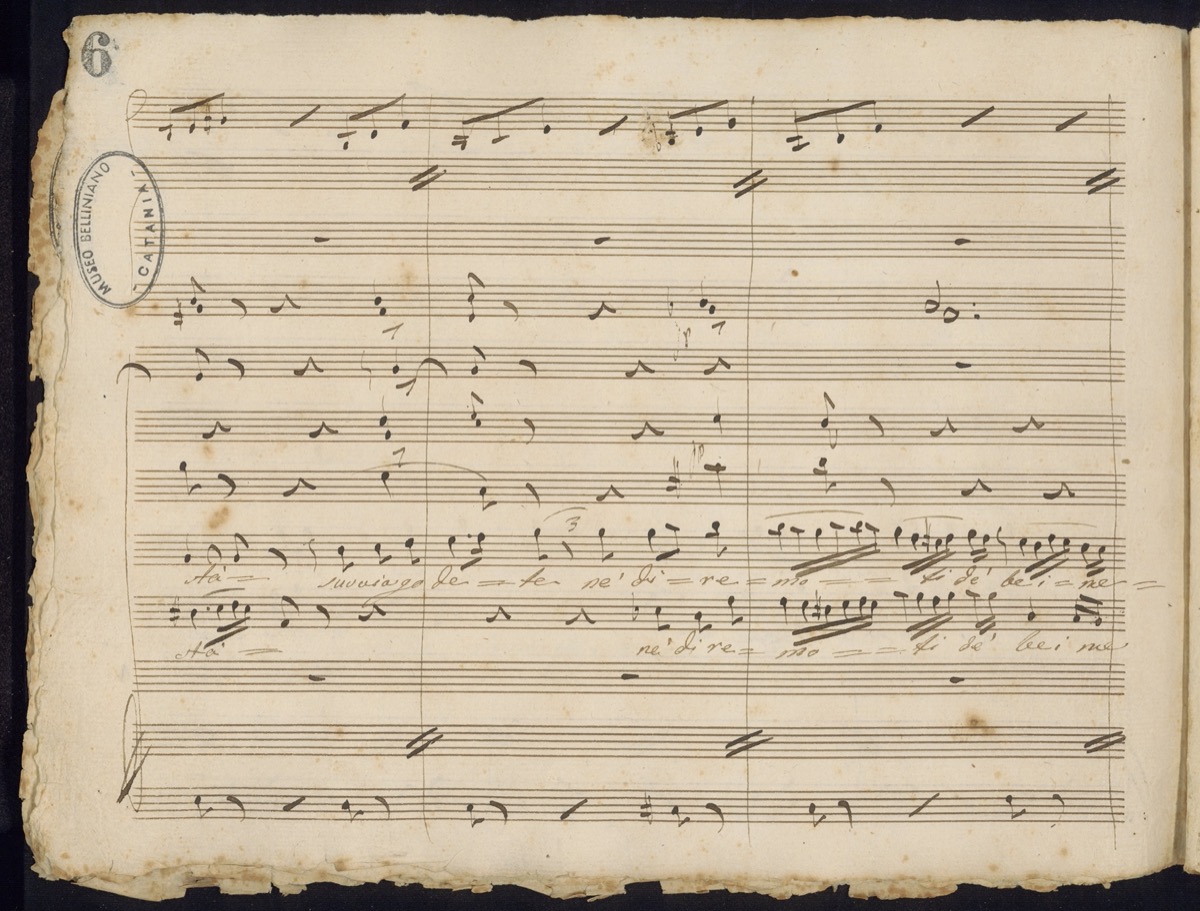 6
MUSEO BELLINIANO
CATANIA
3
tà = de = te ne' di = re = mo = = ti de' be = i = ne =
tà = ne' di re = mo = = ti de' bei ne